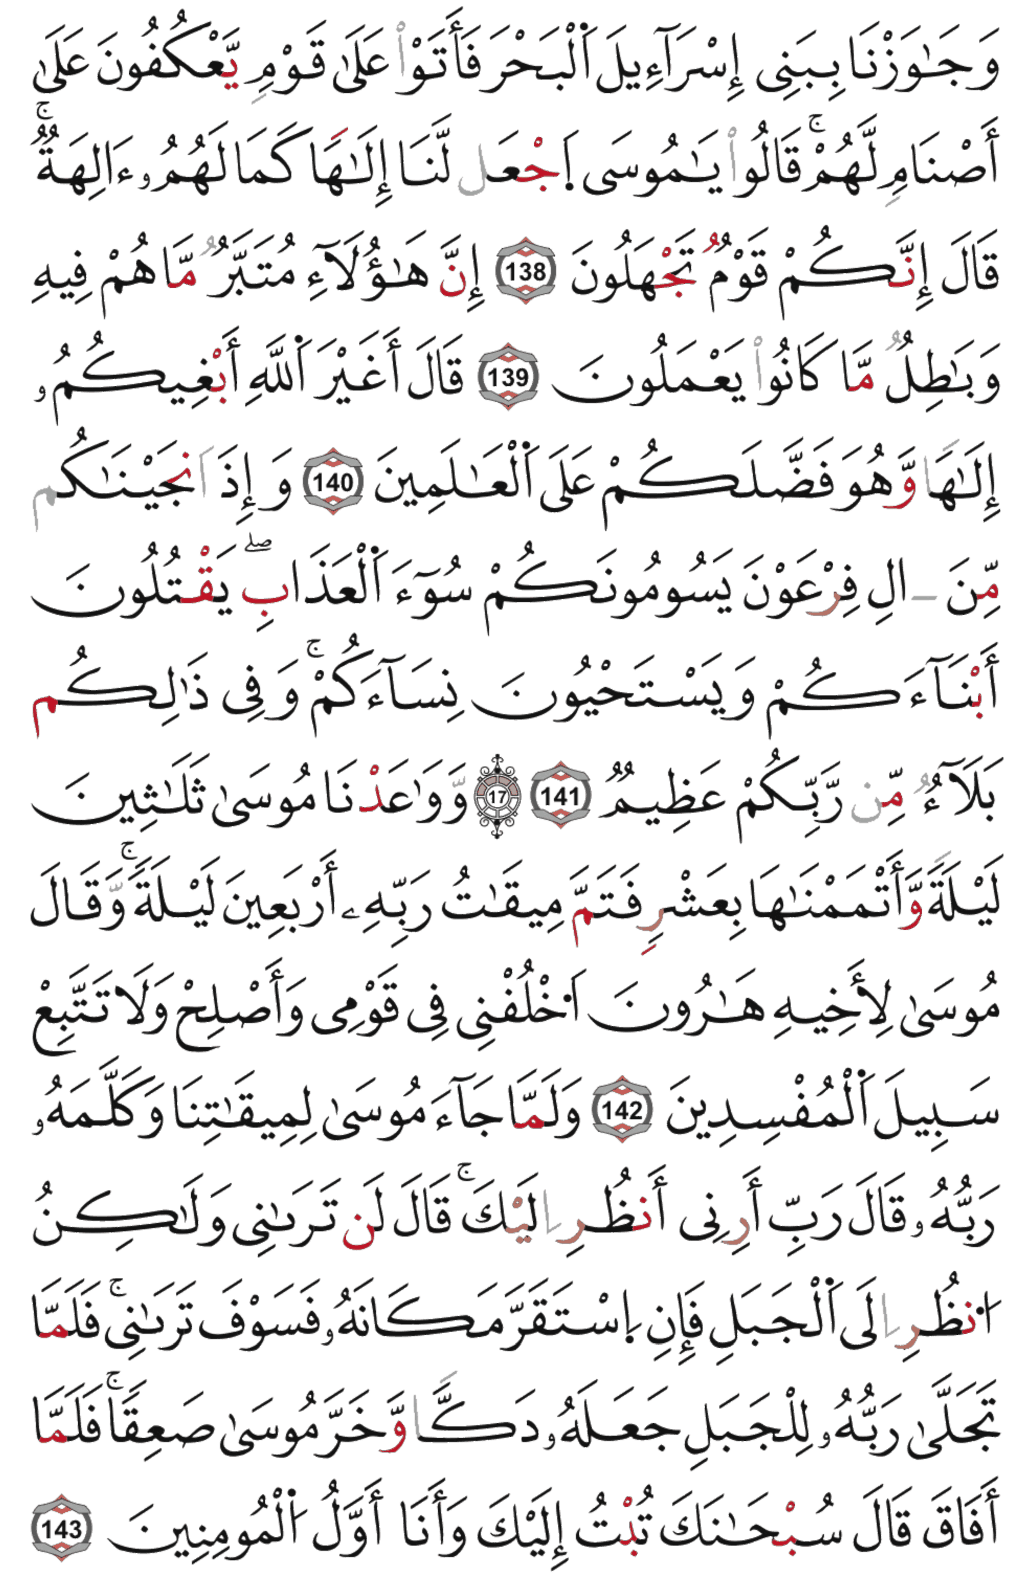 وَجَٰوَزْنَا بِبَنِى إِسْرَآءِيلَ اَ۬لْبَحْرَ فَأَتَوْاْ عَلَىٰ قَوْمٖ يَّعْكُفُونَ عَلَىٰٓ
أَصْنَامٖ لَّهُمْۚ قَالُواْ يَٰمُوسَى اَ۪جْعَل لَّنَا إِلَٰهاٗ كَمَا لَهُمُۥ ءَالِهَةٞۚ
قَالَ إِنَّكُمْ قَوْمٞ تَجْهَلُونَ 138 إِنَّ هَٰٓؤُلَآءِ مُتَبَّرٞ مَّا هُمْ فِيهِ
وَبَٰطِلٞ مَّا كَانُواْ يَعْمَلُونَ 139 قَالَ أَغَيْرَ اَ۬للَّهِ أَبْغِيكُمُۥ
إِلَٰهاٗ وَّهُوَ فَضَّلَكُمْ عَلَى اَ۬لْعَٰلَمِينَ 140 وَإِذَ اَنجَيْنَٰكُم
مِّنَ ـالِ فِرْعَوْنَ يَسُومُونَكُمْ سُوٓءَ اَ۬لْعَذَابِۖ يَقْتُلُونَ
أَبْنَآءَكُمْ وَيَسْتَحْيُونَ نِسَآءَكُمْۚ وَفِى ذَٰلِكُم
بَلَآءٞ مِّن رَّبِّكُمْ عَظِيمٞ 141 17 وَّوَٰعَدْنَا مُوسَىٰ ثَلَٰثِينَ
لَيْلَةٗ وَّأَتْمَمْنَٰهَا بِعَشْرٖ فَتَمَّ مِيقَٰتُ رَبِّهِۦ أَرْبَعِينَ لَيْلَةٗۚ وَّقَالَ
مُوسَىٰ لِأَخِيهِ هَٰرُونَ اَ۟خْلُفْنِى فِى قَوْمِى وَأَصْلِحْ وَلَا تَتَّبِعْ
سَبِيلَ اَ۬لْمُفْسِدِينَ 142 وَلَمَّا جَآءَ مُوسَىٰ لِمِيقَٰتِنَا وَكَلَّمَهُۥ
رَبُّهُۥ قَالَ رَبِّ أَرِنِى أَنظُرِ اِلَيْكَۚ قَالَ لَن تَرَىٰنِى وَلَٰكِنُ
اَ۟نظُرِ اِلَى اَ۬لْجَبَلِ فَإِنِ اِ۪سْتَقَرَّ مَكَانَهُۥ فَسَوْفَ تَرَىٰنِىۚ فَلَمَّا
تَجَلَّىٰ رَبُّهُۥ لِلْجَبَلِ جَعَلَهُۥ دَكّاٗ وَّخَرَّ مُوسَىٰ صَعِقاٗۚ فَلَمَّا
أَفَاقَ قَالَ سُبْحَٰنَكَ تُبْتُ إِلَيْكَ وَأَنَا أَوَّلُ اُ۬لْمُومِنِينَ 143